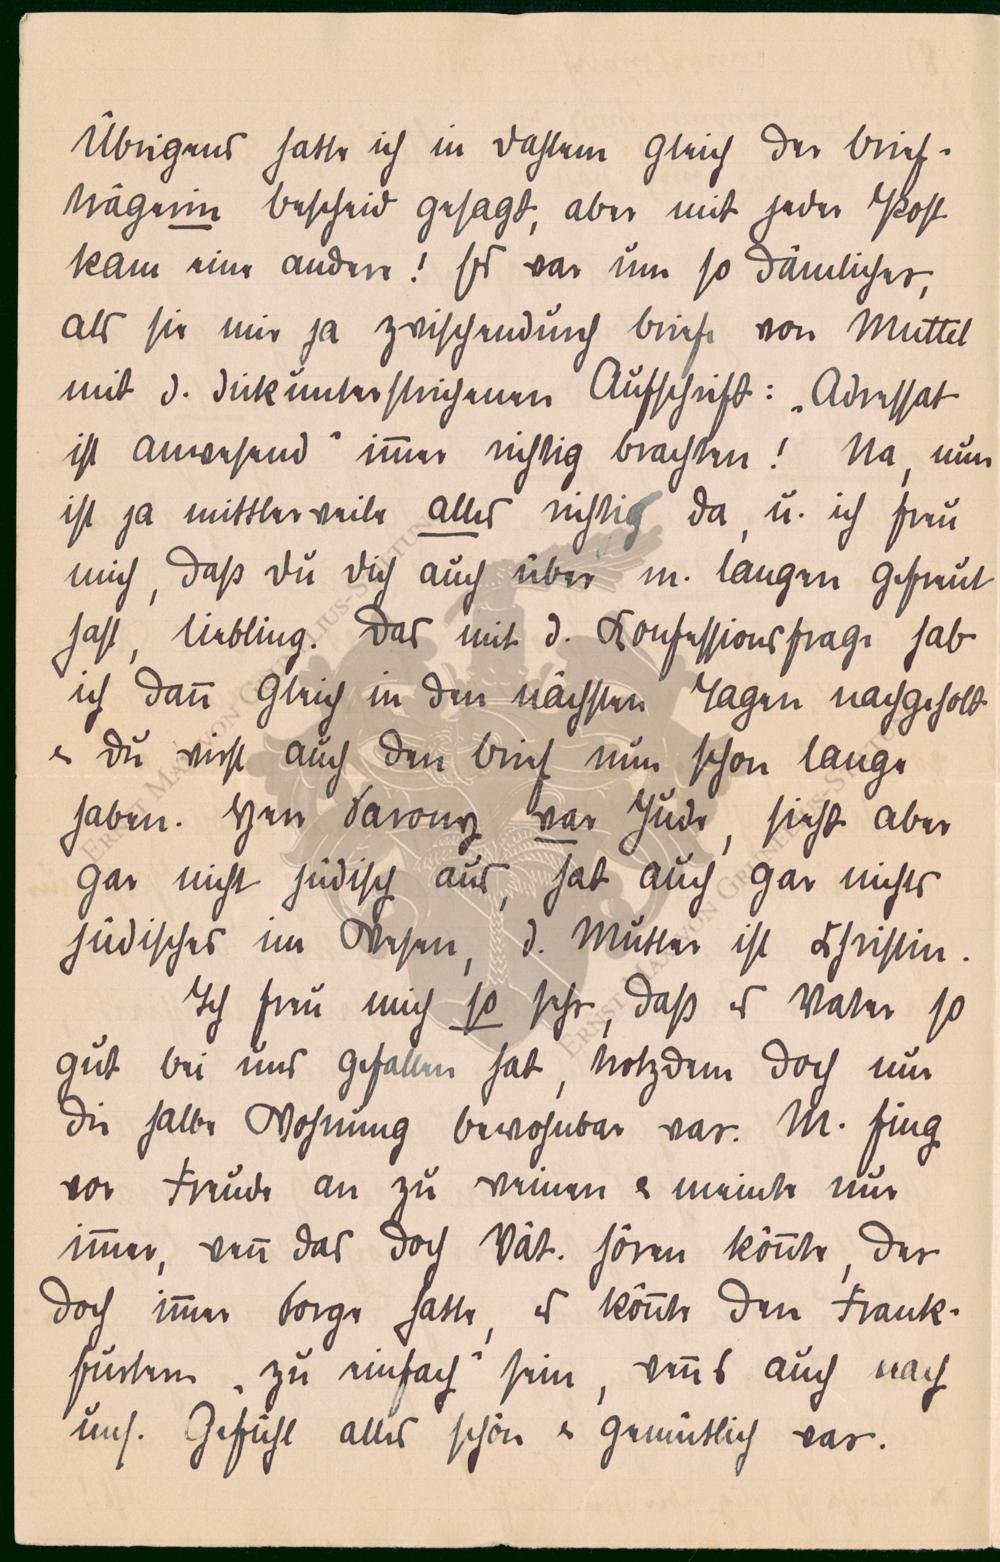 Übrigens hatte ich in Dahlem gleich der Brief-
trägerin bescheid gesagt, aber mit jeder Post
kam eine andere! Es war um so dämlicher,
als sie mir ja zwischendurch briefe von Muttel
mit d. dickunterstrichenen Aufschrift: „Adressat
ist anwesend“ im̄er richtig brachten! Na, nun
ist ja mittlerweile alles richtig da, u. ich freu
mich, daß du dich auch über m. langen gefreut
hast, liebling. Das mit d. Konfessionsfrage hab
ich dan̄ gleich in den nächsten Tagen nachgeholt
& du wirst auch den brief nun schon lange
haben. Herr Varony war Jude, sieht aber
gar nicht jüdisch aus, hat auch gar nichts
jüdisches im Wesen, d. Mutter ist Christin.
Ich freu mich so sehr, daß es Vater so
gut bei uns gefallen hat, trotzdem doch nur
die halbe Wohnung bewohnbar war. M. fing
vor Freude an zu weinen & meinte nur
im̄er, wen̄ das doch Vät. hören kön̄te, der
doch im̄er Sorge hatte, es kön̄te den Frank-
furtern „zu einfach“ sein, wen̄s auch nach
uns. Gefühl alles schön & gemütlich war.
ERNST MAX VON GRUNELIUS-STIFTUNG
ERNST MAX VON GRUNELIUS-STIFTUNG